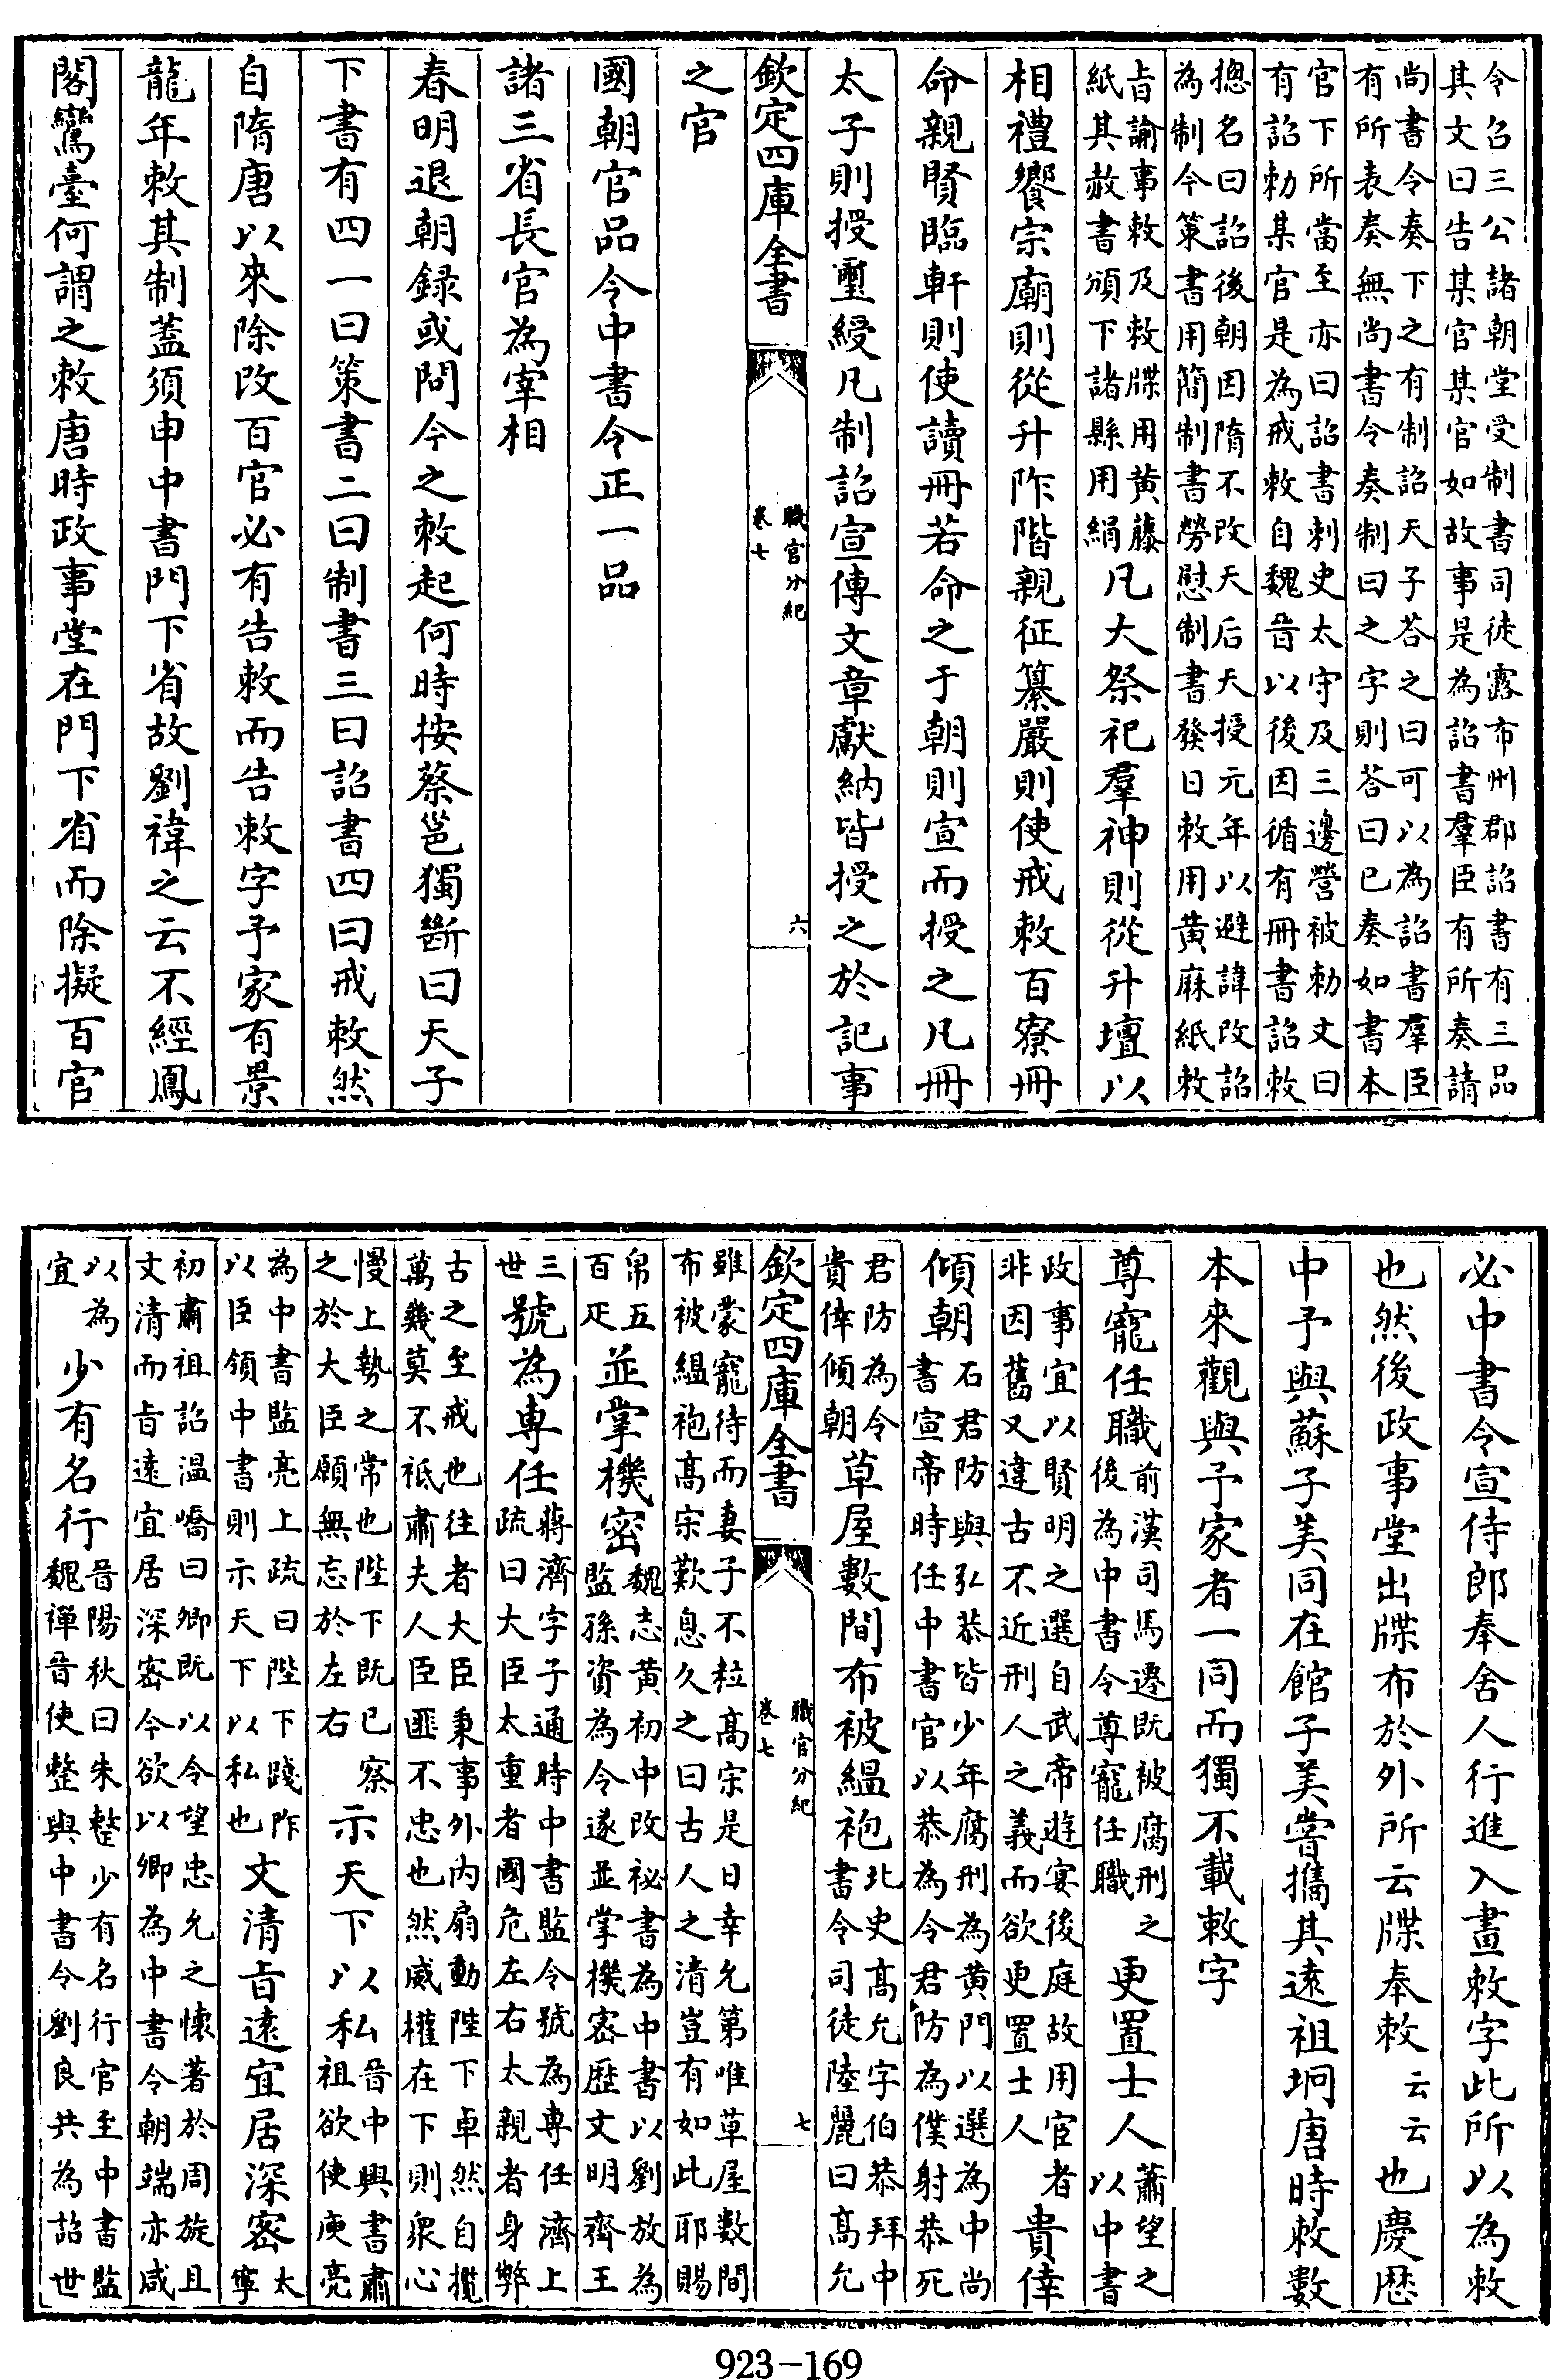 令召三公諸朝堂受制書司徒露布州郡詔書有三品
其文曰告某官某官如故事是為詔書羣臣有所奏請
尚書令奏下之有制詔天子荅之曰可以為詔書羣臣
有所表奏無尚書令奏制曰之字則荅曰已奏如書本
官下所當至亦曰詔書刺史太守及三邊營被勅文曰
有詔勅某官是為戒敕自魏晉以後因循有冊書詔敕
摠名曰詔後朝因隋不改天后天授元年以避諱改詔
為制今策書用簡制書勞慰制書發日敕用黄麻紙敕
旨諭事敕及敕牒用黄藤紙其赦書頒下諸縣用絹凡大祭祀羣神則從升壇以
相禮饗宗廟則從升阼階親征纂嚴則使戒敕百寮冊
命親賢臨軒則使讀冊若命之于朝則宣而授之凡冊
太子則授璽綬凡制詔宣傳文章獻納皆授之於記事
欽定四庫全書 職官分紀 卷七 六
之官
國朝官品令中書令正一品
諸三省長官為宰相
春明退朝録或問今之敕起何時按蔡邕獨斷曰天子
下書有四一曰策書二曰制書三曰詔書四曰戒敕然
自隋唐以來除改百官必有告敕而告敕字予家有景
龍年敕其制蓋須申中書門下省故劉禕之云不經鳳
閣鸞臺何謂之敕唐時政事堂在門下省而除擬百官
必中書令宣侍郎奉舍人行進入畫敕字此所以為敕
也然後政事堂出牒布於外所云牒奉敕云云也慶厯
中予與蘇子美同在館子美嘗攜其遠祖坰唐時敕數
本來觀與予家者一同而獨不載敕字
尊寵任職前漢司馬遷既被腐刑之後為中書令尊寵任職更置士人蕭望之以中書
政事宜以賢明之選自武帝遊宴後庭故用宦者
非因舊又違古不近刑人之義而欲更置士人貴倖
傾朝石君防與弘恭皆少年腐刑為黄門以選為中尚書宣帝時任中書官以恭為令君防為僕射恭死
君防為令貴倖傾朝草屋數間布被緼袍北史高允字伯恭拜中書令司徒陸麗曰高允
欽定四庫全書 職官分紀 卷七 七
雖蒙寵待而妻子不粒高宗是日幸允第唯草屋數間
布被緼袍高宗歎息久之曰古人之清豈有如此耶賜
帛五百疋並掌機密魏志黄初中改祕書為中書以劉放為監孫資為令遂並掌機密歷文明齊王
三世號為專任蔣濟字子通時中書監令號為專任濟上疏曰大臣太重者國危左右太親者身弊
古之至戒也往者大臣秉事外内扇動陛下卓然自攬
萬幾莫不祗肅夫人臣匪不忠也然威權在下則衆心
慢上勢之常也陛下既已察之於大臣願無忘於左右示天下以私晉中興書肅祖欲使庾亮
為中書監亮上疏曰陛下踐阼以臣領中書則示天下以私也文清旨遠宜居深密太寧
初肅祖詔温嶠曰卿既以令望忠允之懷著於周旋且
文清而旨遠宜居深密今欲以卿為中書令朝端亦咸
以為宜少有名行晉陽秋曰朱整少有名行官至中書監魏禪晉使整與中書令劉良共為詔世
923-169